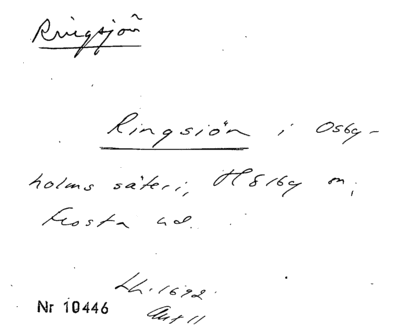 Ringsjön
Ringsiön i Osby-
holms säteri, Hörby sn,
Frosta hd.
Lh. 1692
Avs 11
Nr 10446